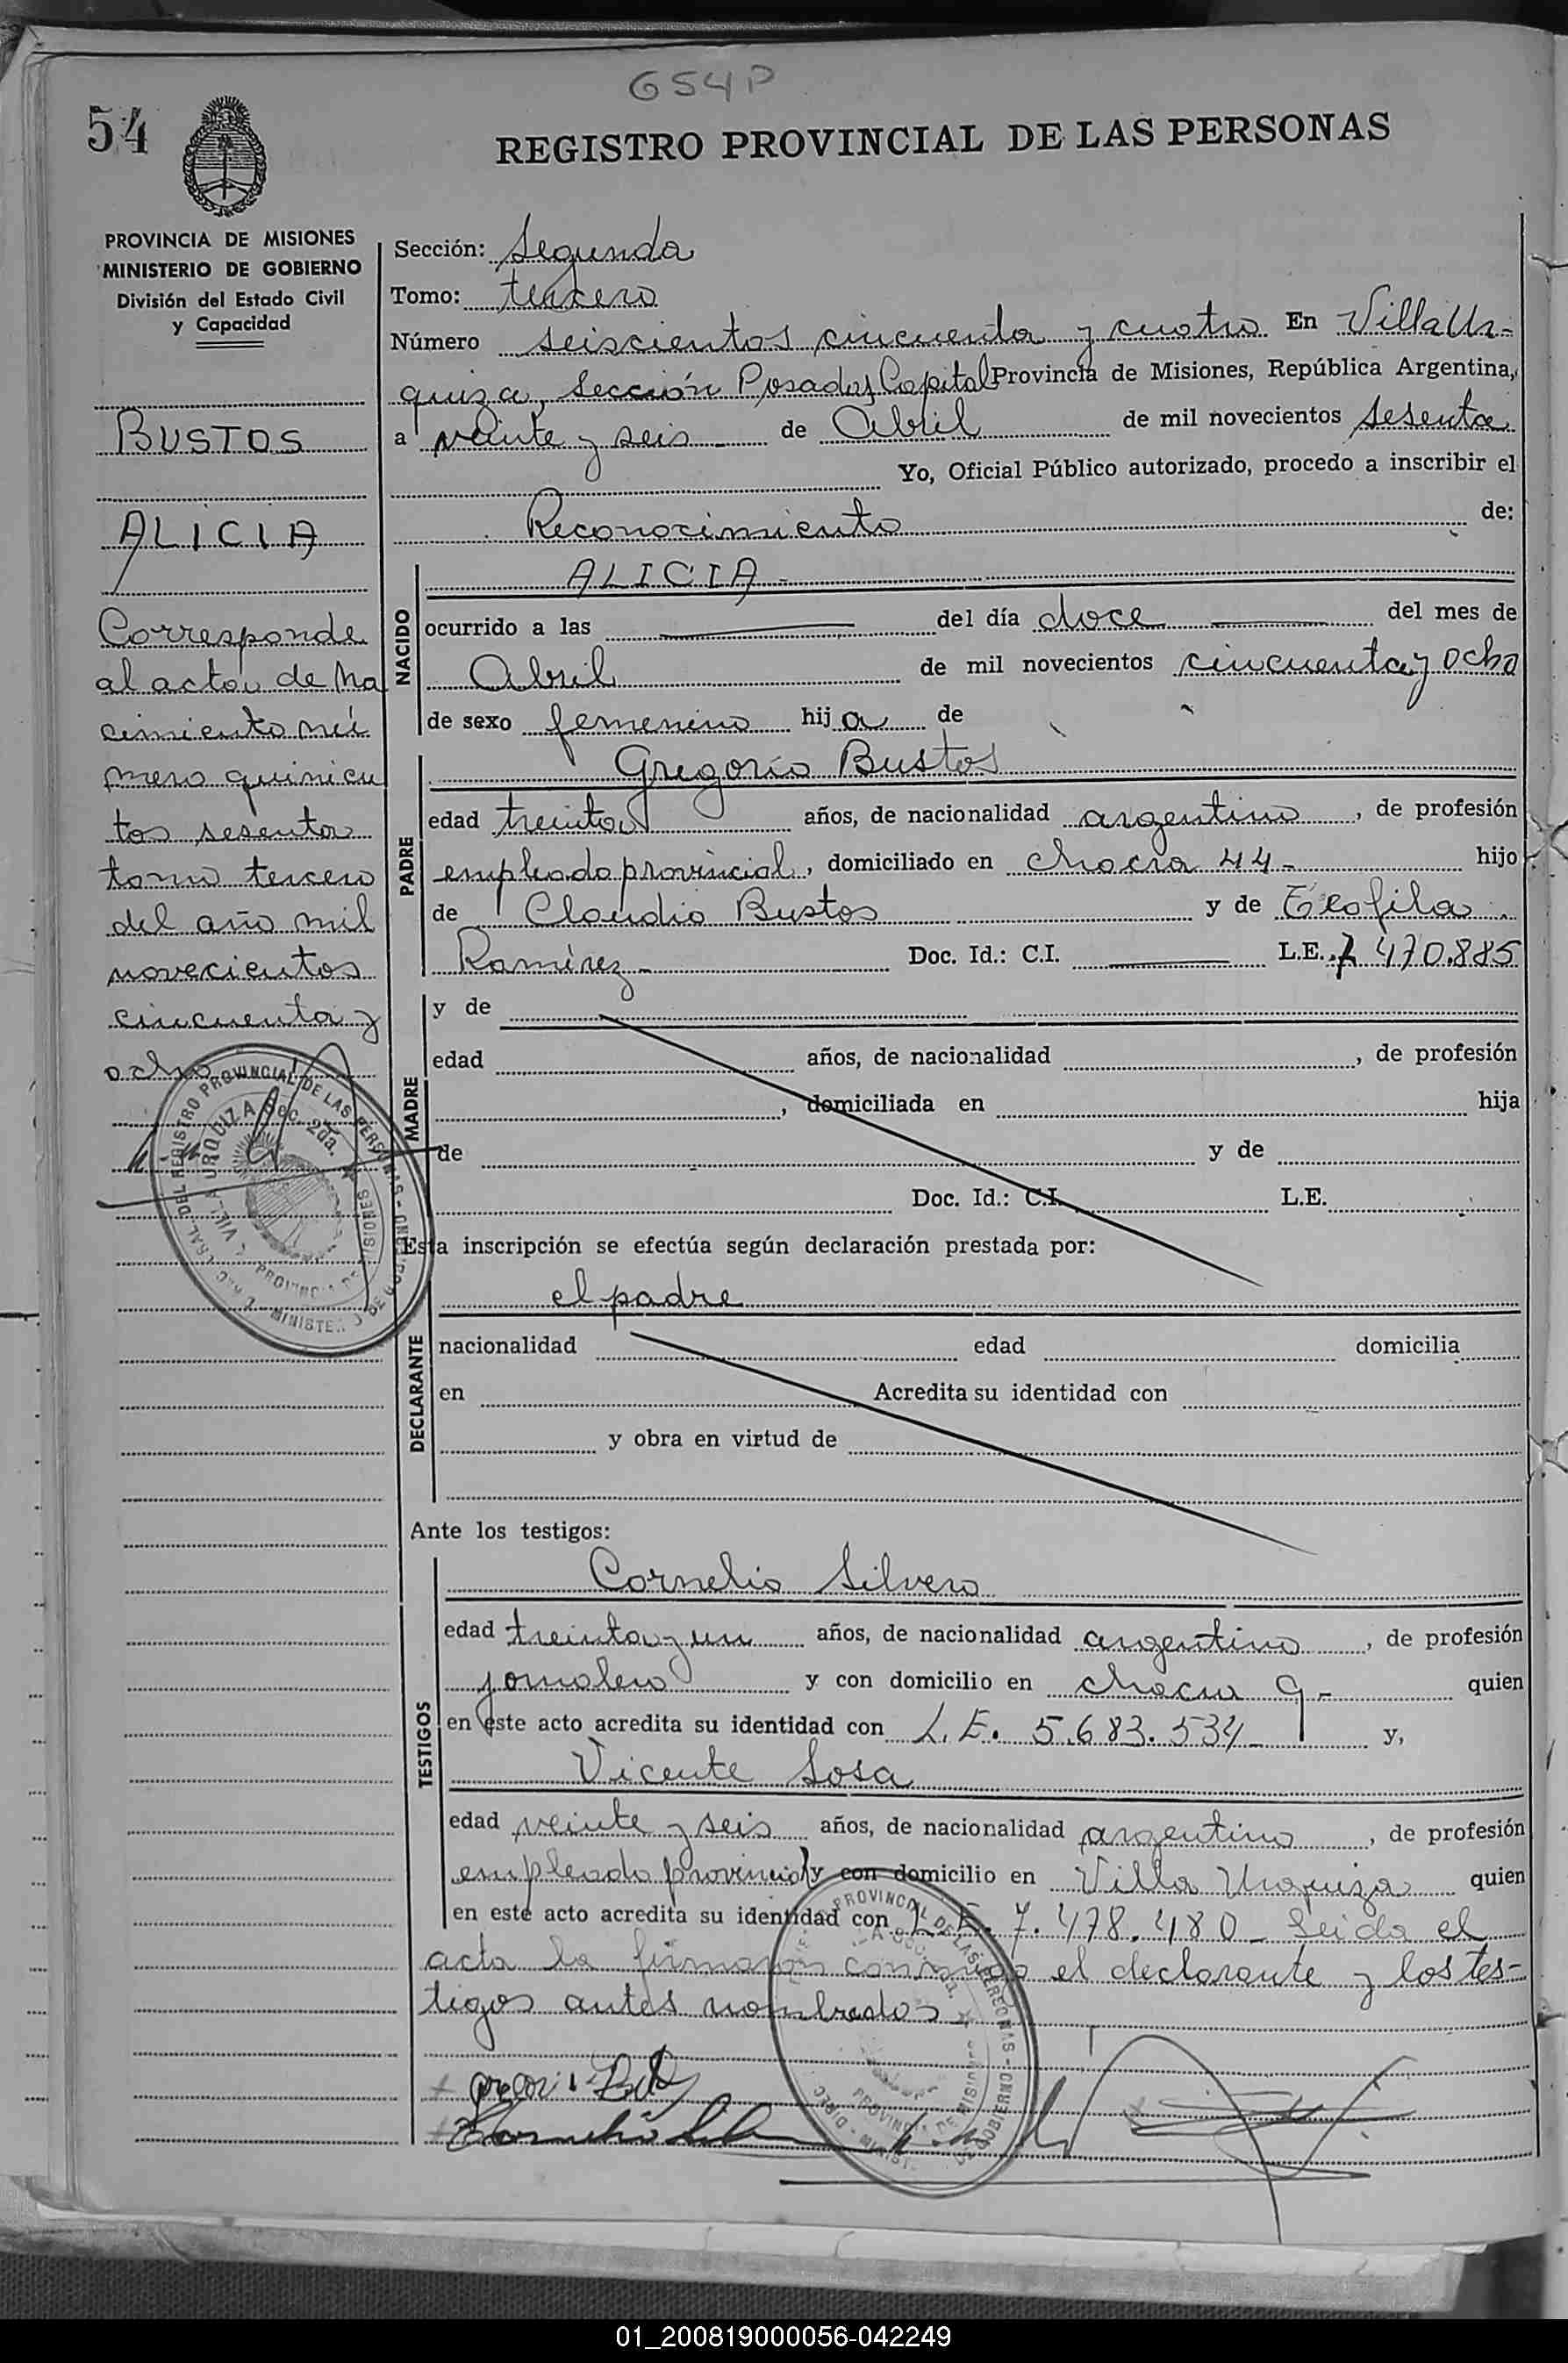 654P
54
REGISTRO PROVINCIAL DE LAS PERSONAS
PROVINCIA DE MISIONES
MINISTERIO DE GOBIERNO
División del Estado Civil
y Capacidad
BUSTOS
ALICIA
Corresponde
al acta de na
cimiento nú
mero quinien
tos sesenta
tomo tercero
del año mil
novecientos
cincuenta y
ocho
Sección: Segunda
Tomo: tercero
Número seiscientos cincuenta y cuatro En Villa Ur-
quiza, Sección Posadas Capital Provincia de Misiones, República Argentina,
a veinte y seis de Abril de mil novecientos sesenta
Yo, Oficial Público autorizado, procedo a inscribir el
Reconocimiento de:
NACIDO
ALICIA -
ocurrido a las del día doce del mes de
Abril de mil novecientos cincuenta y ocho
de sexo femenino hija de
PADRE
Gregorio Bustos
edad treinta años, de nacionalidad argentino, de profesión
empleado provincial, domiciliado en chacra 44- hijo
de Claudio Bustos y de Teofila
Ramírez - Doc. Id.: C.I. L.E. 7.470.885
MADRE
y de
edad años, de nacionalidad , de profesión
, domiciliada en hija
de y de
Doc. Id.: C.I. L.E.
Esta inscripción se efectúa según declaración prestada por:
DECLARANTE
el padre
nacionalidad edad domicilia
en Acredita su identidad con
y obra en virtud de
Ante los testigos:
TESTIGOS
Cornelio Silvero
edad treinta y un años, de nacionalidad argentino, de profesión
jornalero y con domicilio en chacra 9- quien
en este acto acredita su identidad con L.E. 5.683.534- y,
Vicente Sosa
edad veinte y seis años, de nacionalidad argentino, de profesión
empleado provincial y con domicilio en Villa Urquiza quien
en este acto acredita su identidad con L.E. 7.478.480- Leida el
acta la firmaron conmigo el declarante y los tes-
tigos antes nombrados
REGISTRO PROVINCIAL DE LAS PERSONAS
VILLA URQUIZA Sec. 2da.
PROVINCIA DE MISIONES
PROVINCIAL DE LAS PERSONAS
PROVINCIA DE MISIONES
01_200819000056-042249